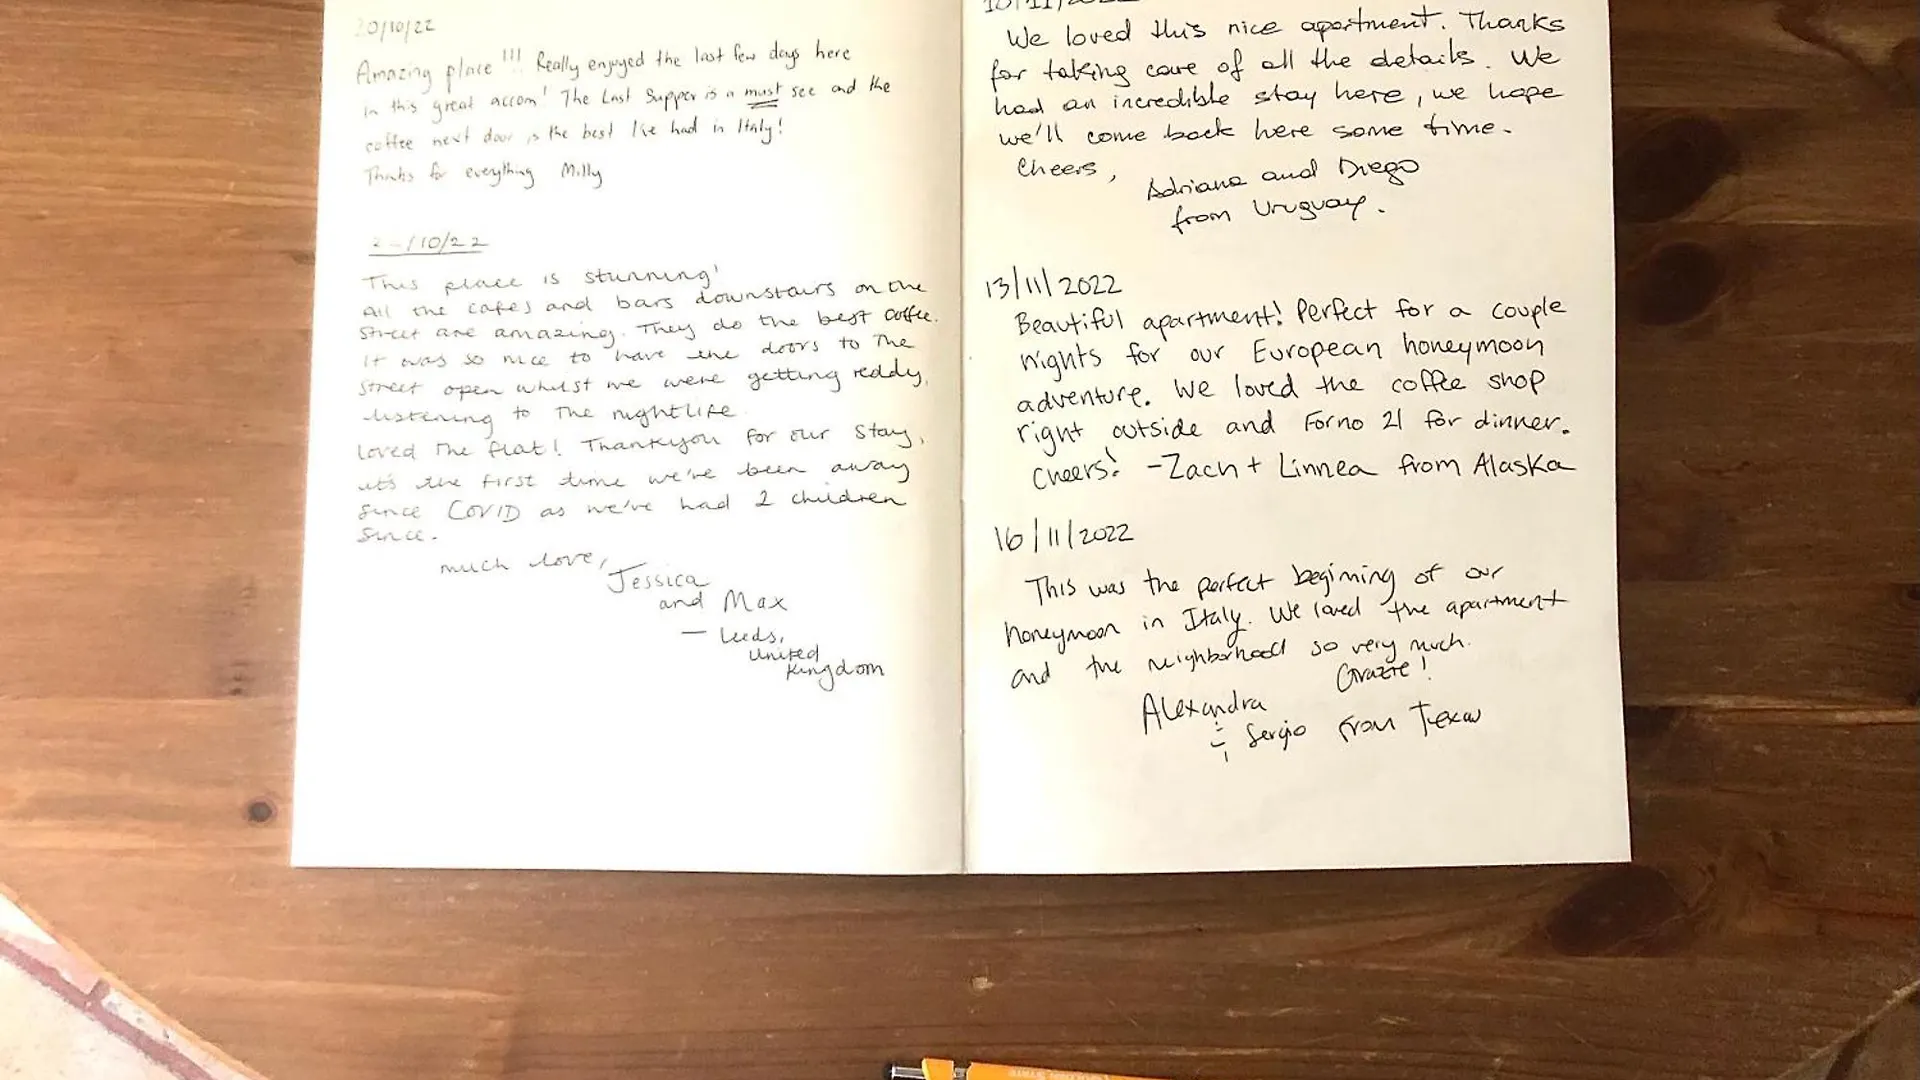 20/10/22
Amazing place!!! Really enjoyed the last few days here
in this great accom! The Last Supper is a must see and the
coffee next door is the best I've had in Italy!
Thanks for everything Milly
/10/22
This place is stunning!
All the cafes and bars downstairs on the
street are amazing. They do the best coffee.
It was so nice to have the doors to the
street open whilst we were getting reddy,
listening to the nightlife.
Loved the flat! Thankyou for our stay,
it's the first time we've been away
since COVID as we've had 2 children
since.
much love,
Jessica
and Max
— Leeds,
United
Kingdom
10/11/2022
We loved this nice apartment. Thanks
for taking care of all the details. We
had an incredible stay here, we hope
we'll come back here some time.
Cheers,
Adriana and Diego
from Uruguay.
13/11/2022
Beautiful apartment! Perfect for a couple
nights for our European honeymoon
adventure. We loved the coffee shop
right outside and Forno 21 for dinner.
Cheers! -Zach + Linnea from Alaska
16/11/2022
This was the perfect beginning of our
honeymoon in Italy. We loved the apartment
and the neighborhood so very much.
Grazie!
Alexandra
& Sergio from Texas